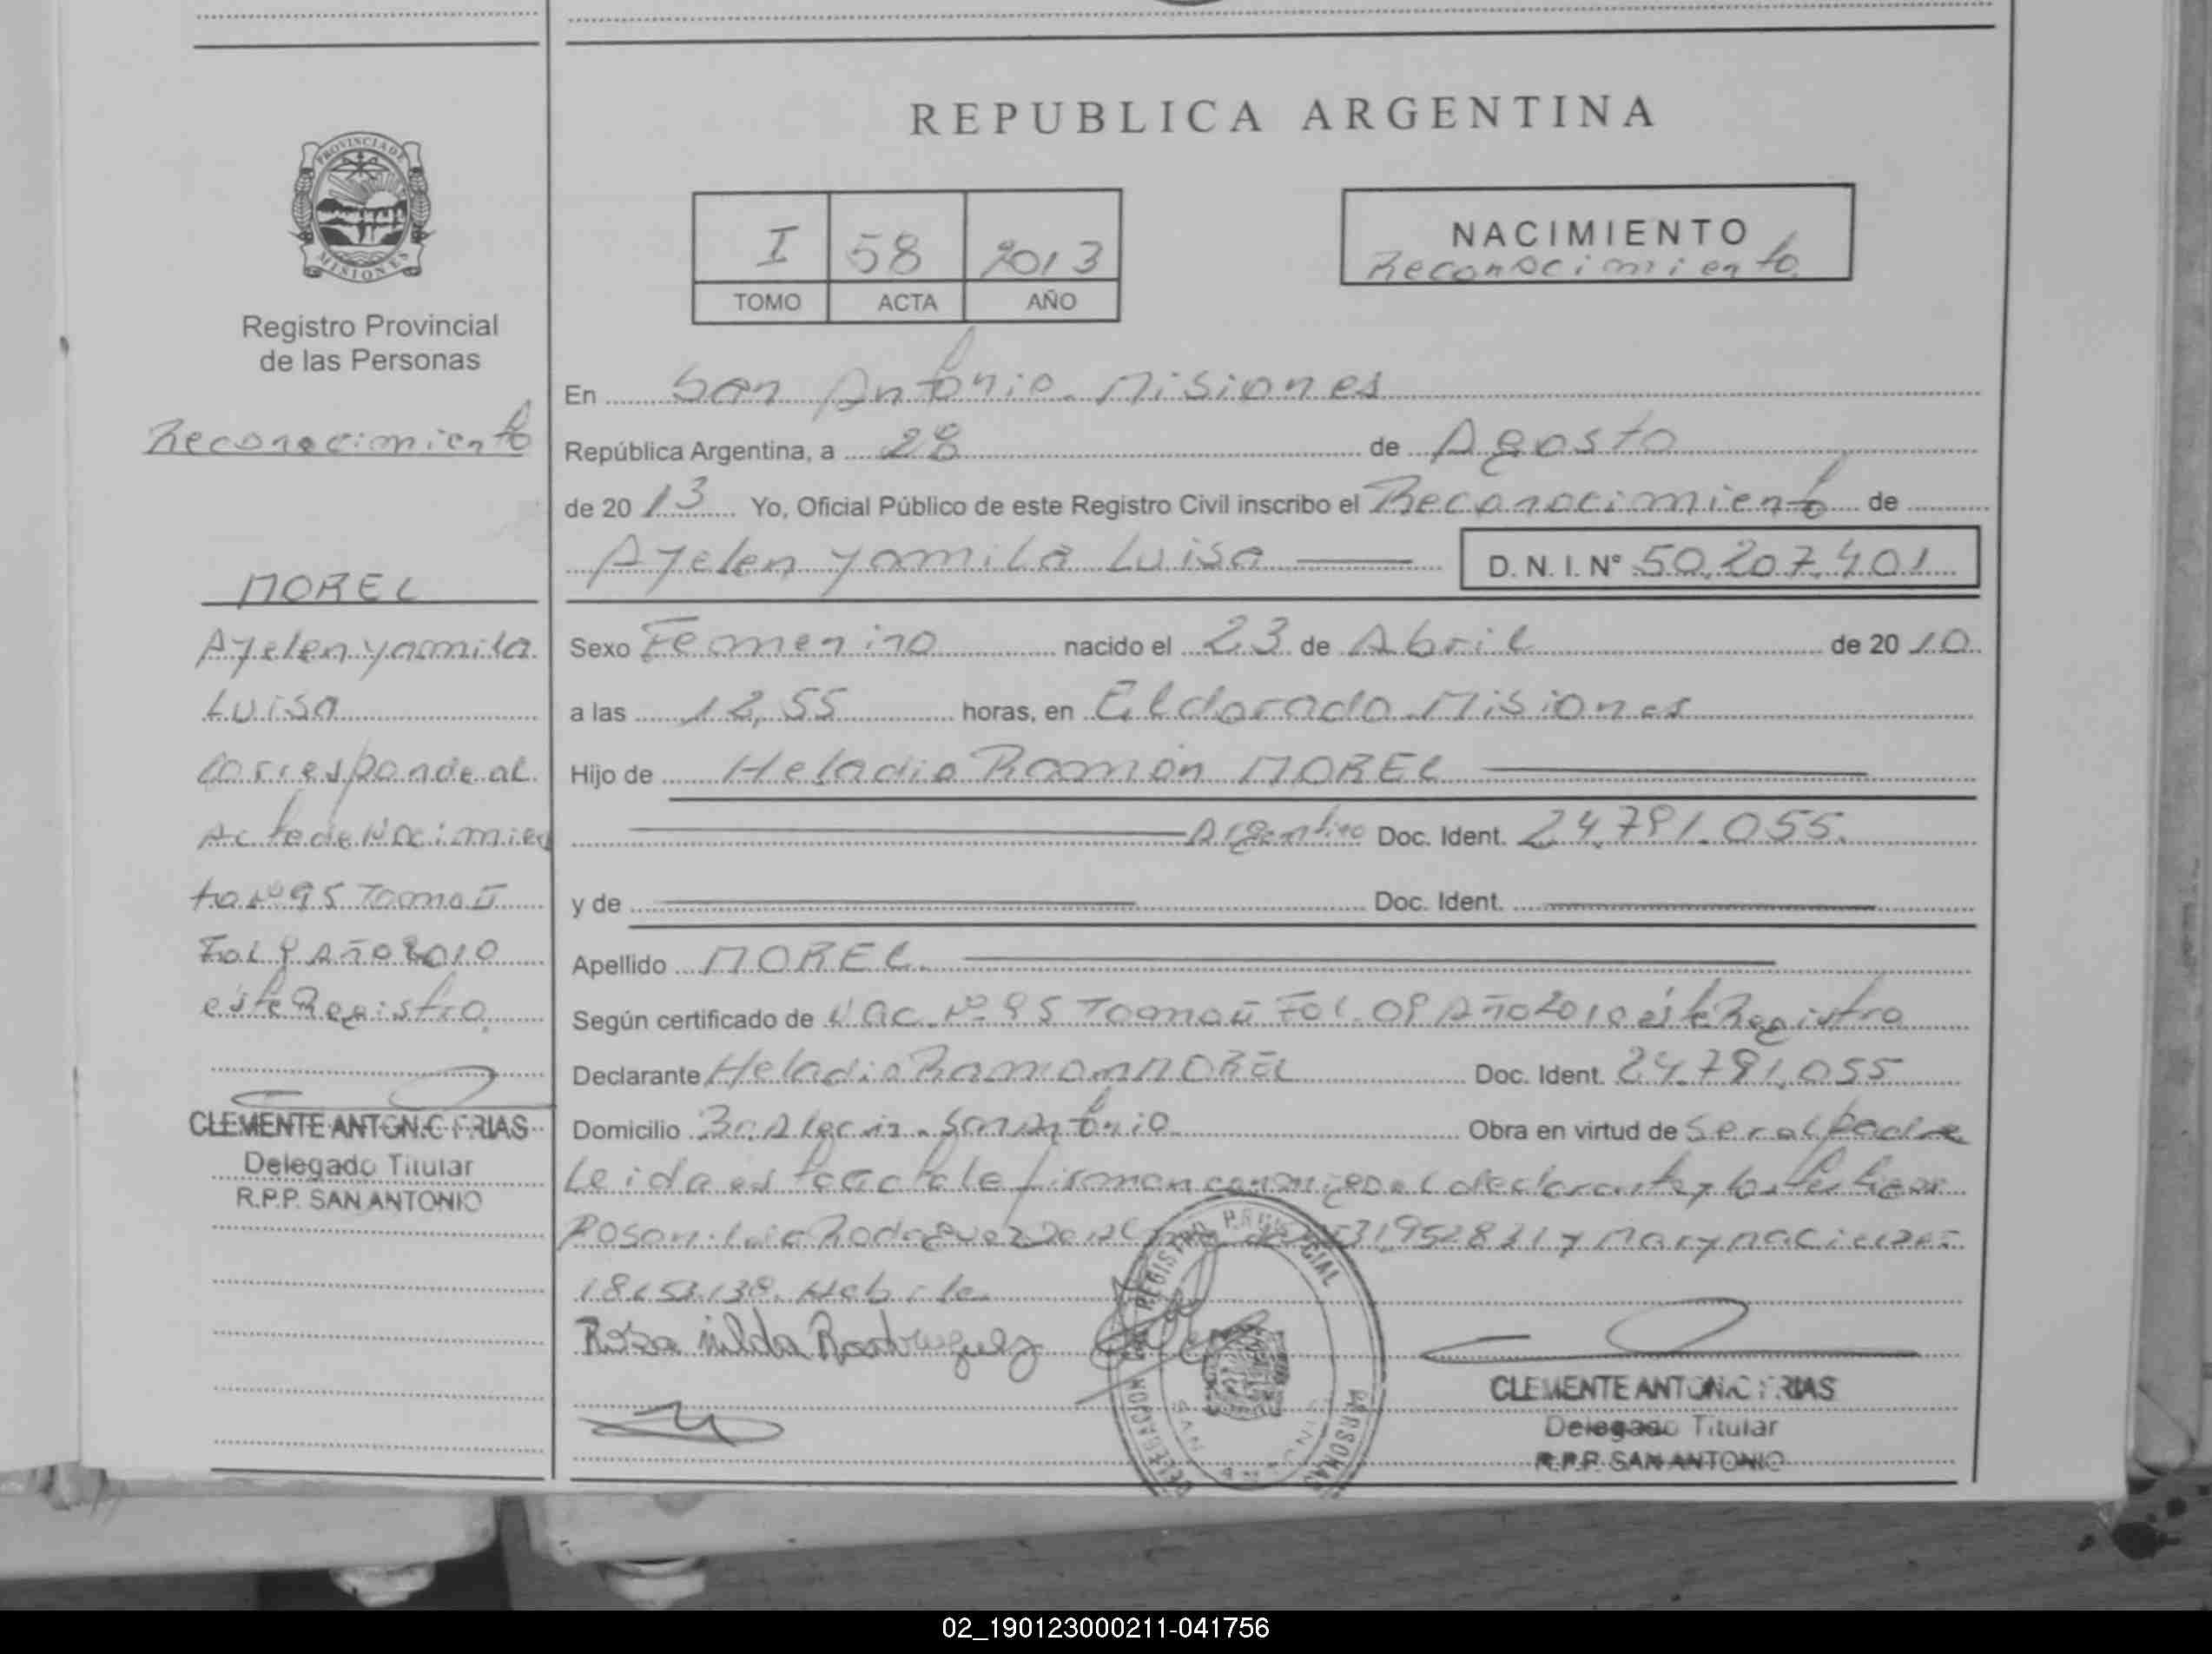 REPUBLICA ARGENTINA
PROVINCIA DE
MISIONES
Registro Provincial
de las Personas
Reconocimiento
MOREL
Ayelen Yamila
Luisa
Corresponde al
Acta de Nacimien
to Nº 95 Tomo II
Fol 9 Año 2010
este Registro.
CLEMENTE ANTONIO FRIAS
Delegado Titular
R.P.P. SAN ANTONIO
I 58 2013
TOMO ACTA AÑO
NACIMIENTO
Reconocimiento
En San Antonio Misiones
República Argentina, a 28 de Agosto
de 20 13 Yo, Oficial Público de este Registro Civil inscribo el Reconocimiento de
Ayelen Yamila Luisa
D. N. I. Nº 50.207.401
Sexo Femenino nacido el 23 de Abril de 20 10
a las 12,55 horas, en Eldorado Misiones
Hijo de Heladio Ramón MOREL
Argentino Doc. Ident. 24.781.055.
y de Doc. Ident.
Apellido MOREL
Según certificado de Nac. Nº 95 Tomo II Fol. 09 Año 2010 este Registro
Declarante Heladio Ramon MOREL Doc. Ident. 24.781.055
Domicilio San Antonio Obra en virtud de ser el padre
Leida esta acta le firman conmigo el declarante y los testigos
Rodriguez y
Rosa nilda Rodriguez
REGISTRO PROVINCIAL
DELEGACION
PERSONAS
CLEMENTE ANTONIO FRIAS
Delegado Titular
R.P.P. SAN ANTONIO
02_190123000211-041756